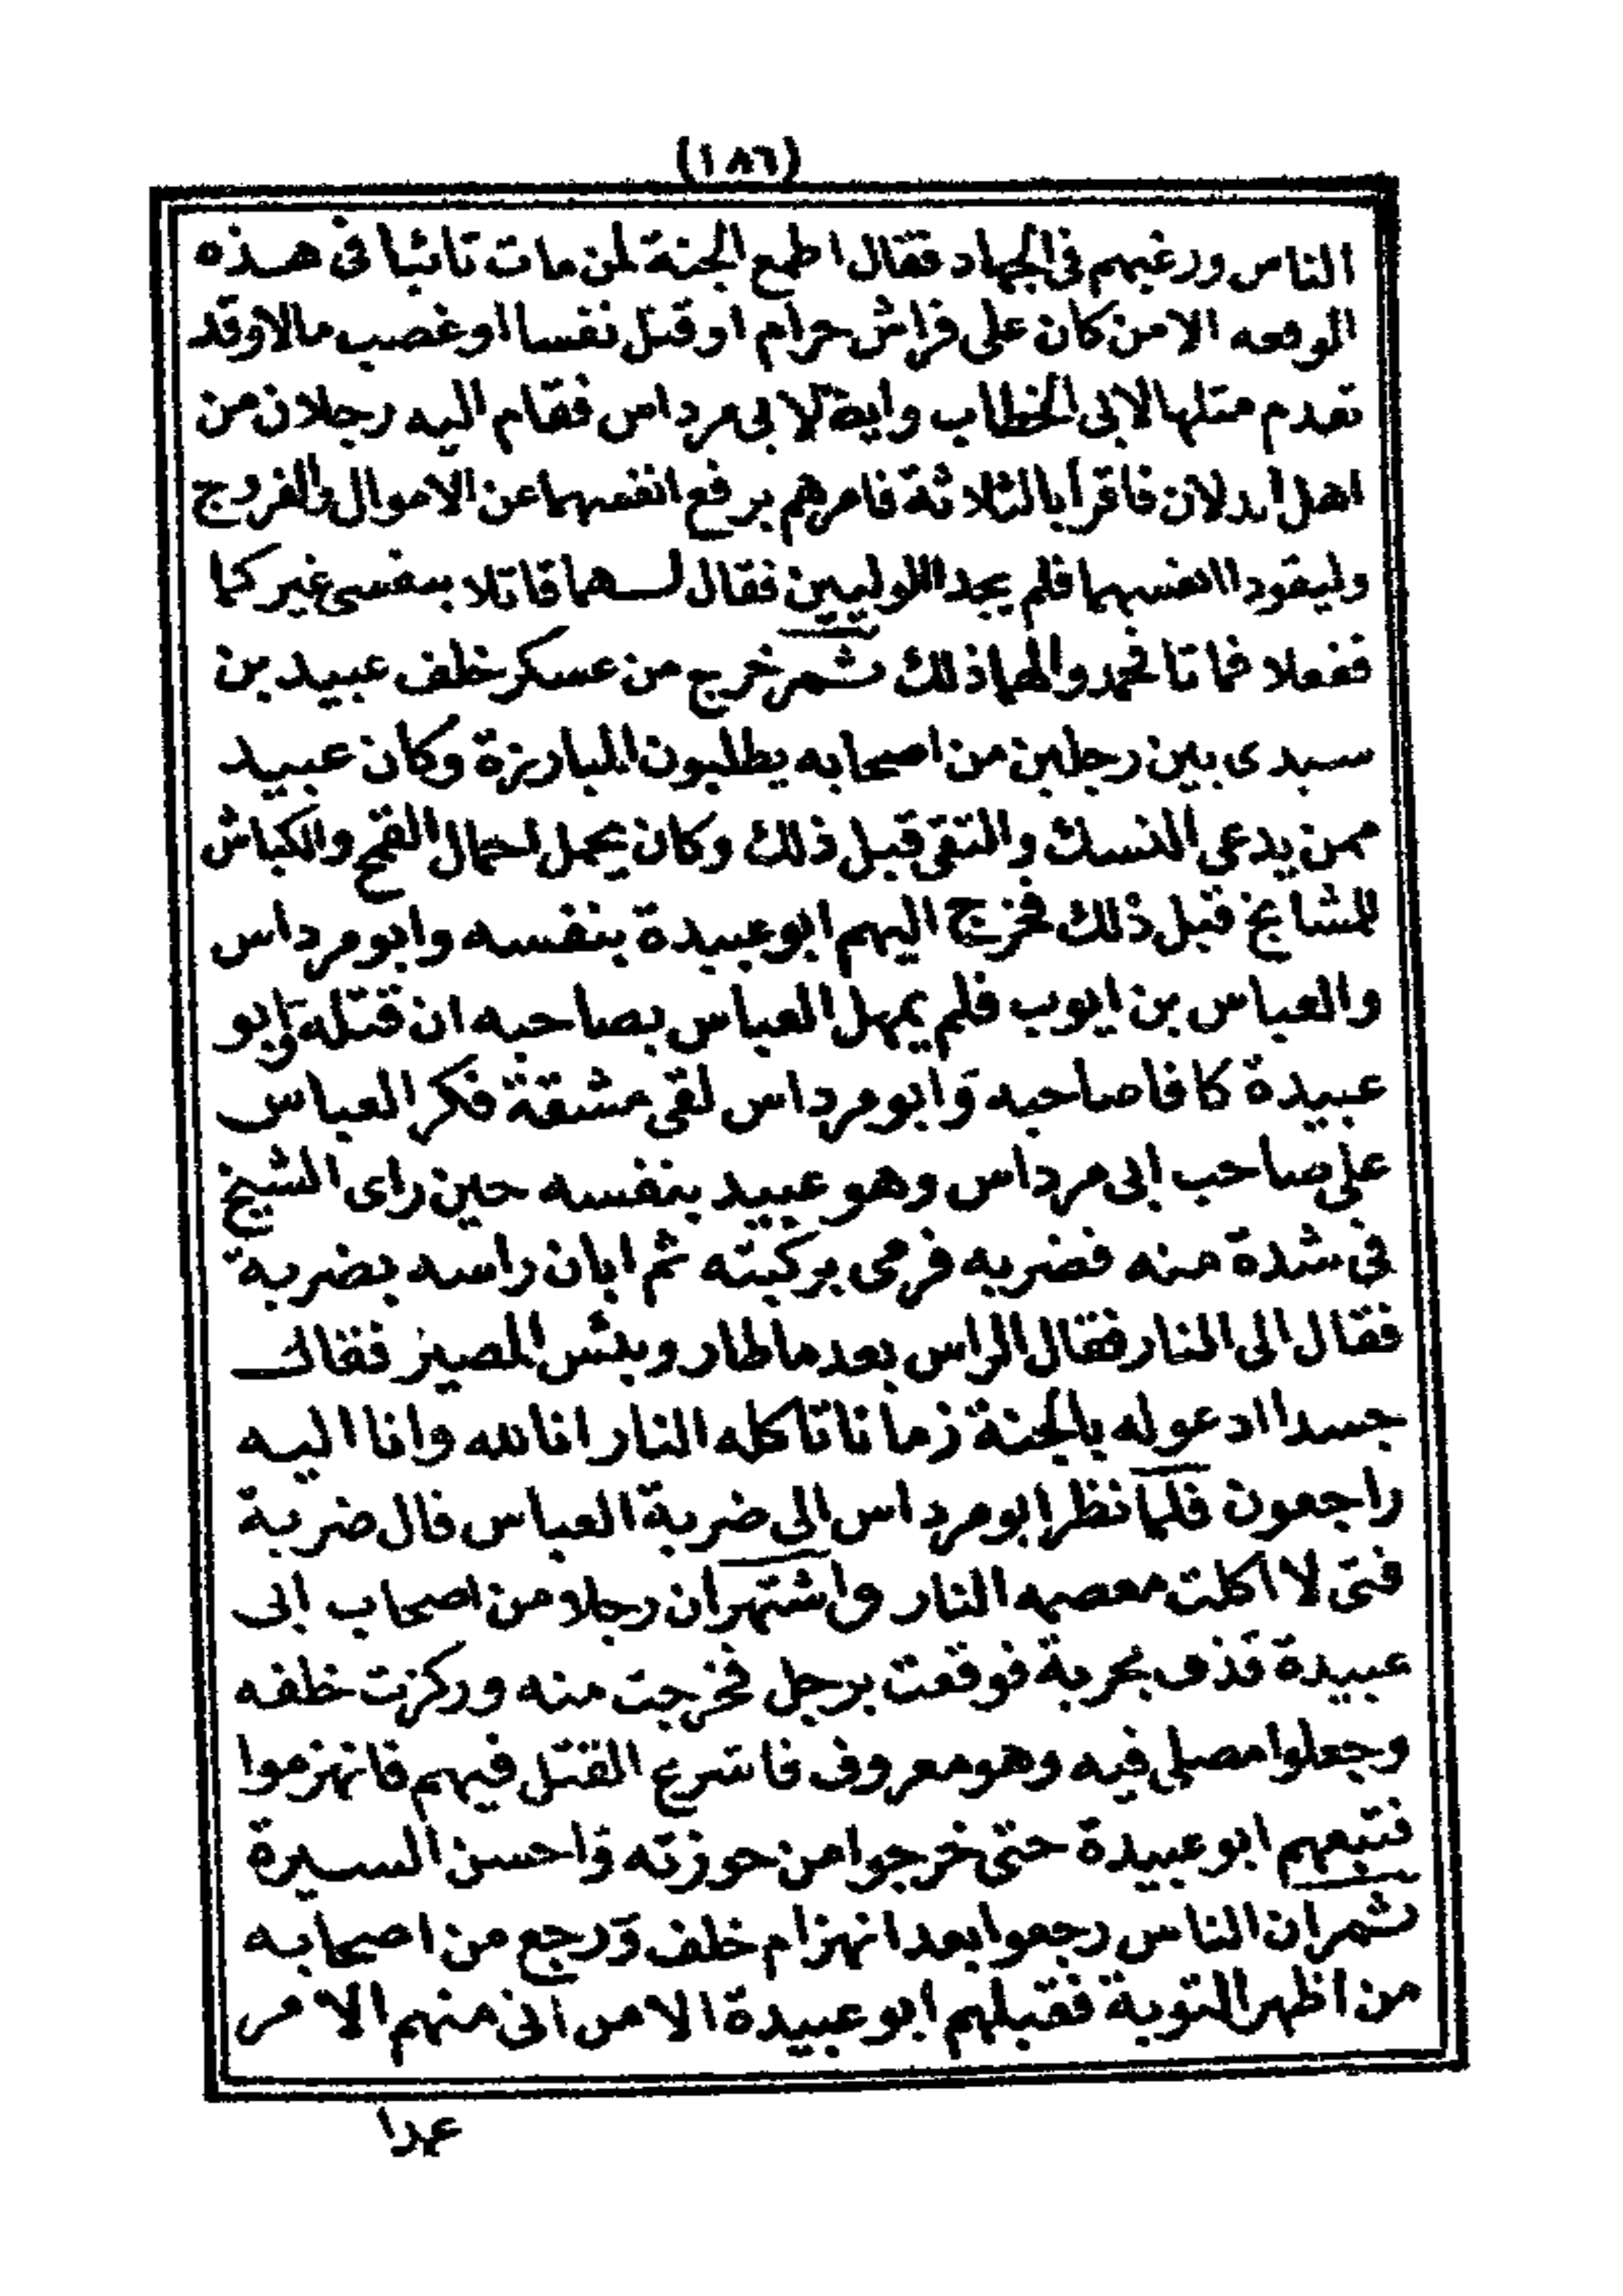 (١٨٦)
الناس ورغبهم فى الجهاد فقال اطمع الجنة لمن مات تائبا فى هذه
الوقعه الا من كان على فراش حرام او قتل نفسا او غصب مالا وقد
تقدم مثلها لابى الخطاب واية لابى مرداس فقام اليه رجلان من
اهل ايدلان فاقرأ بالثلاثة فامرهم برفع انفسهما عن الاموال والفروج
وليقودا انفسهما فلم يجد اللوليين فقال لهما قاتلا بنفسى غير كما
ففعلا فماتا فحمد والهما ذلك ثم خرج من عسكر خلف عبيد بن
سبدى بين رجلين من اصحابه يطلبون المبارزة وكان عبيد
ممن يدعى النسك والتقى قبل ذلك وكان يحمل احمال القمح والكباش
للمشايخ قبل ذلك فخرج اليهم ابو عبيدة بنفسه وابو مرداس
والعباس بن ايوب فلم يمهل العباس بصاحبه ان قتله وابو
عبيدة كافا صاحبه وابو مرداس لقى مشقة فكر العباس
على صاحب ابى مرداس وهو عبيد بنفسه حين راى الشيخ
فى شدة منه فضربه فرمى بركبته ثم ابان راسه بضربة
فقال الى النار فقال الراس بعد ما طار وبئس المصير فقال
جسدا ادعو له بالجنة زمانا تاكله النار انا لله وانا اليه
راجعون فلما نظر ابو مرداس الى ضربة العباس قال ضربة
فتى لا اكلت معصمه النار واشتهر ان رجلا من اصحاب ابى
عبيدة قذف بحربة فوقعت برجل فخرجت منه وركزت خلفه
وجعلوا مصلى فيه وهو معروف فاسرع القتل فيهم فانهزموا
فتبعهم ابو عبيدة حتى خرجوا من حوزته واحسن السيرة
ثم ان الناس رجعوا بعد انهزام خلف ورجع من اصحابه
من اظهر التوبة فقبلهم ابو عبيدة الا من اتى منهم الامر
عمدا